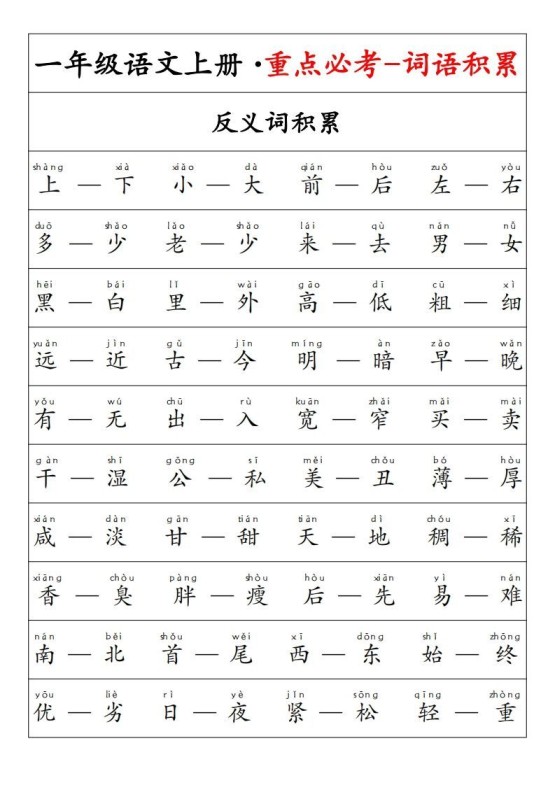 一年级语文上册·重点必考-词语积累
反义词积累
shàng xià xiǎo dà qián hòu zuǒ yòu
上 — 下 小 — 大 前 — 后 左 — 右
duō shǎo lǎo shào lái qù nán nǚ
多 — 少 老 — 少 来 — 去 男 — 女
hēi bái lǐ wài gāo dī cū xì
黑 — 白 里 — 外 高 — 低 粗 — 细
yuǎn jìn gǔ jīn míng àn zǎo wǎn
远 — 近 古 — 今 明 — 暗 早 — 晚
yǒu wú chū rù kuān zhǎi mǎi mài
有 — 无 出 — 入 宽 — 窄 买 — 卖
gàn shī gōng sī měi chǒu bó hòu
干 — 湿 公 — 私 美 — 丑 薄 — 厚
xián dàn gān tián tiān dì chóu xī
咸 — 淡 甘 — 甜 天 — 地 稠 — 稀
xiāng chòu pàng shòu hòu xiān yì nán
香 — 臭 胖 — 瘦 后 — 先 易 — 难
nán běi shǒu wěi xī dōng shǐ zhōng
南 — 北 首 — 尾 西 — 东 始 — 终
yōu liè rì yè jǐn sōng qīng zhòng
优 — 劣 日 — 夜 紧 — 松 轻 — 重